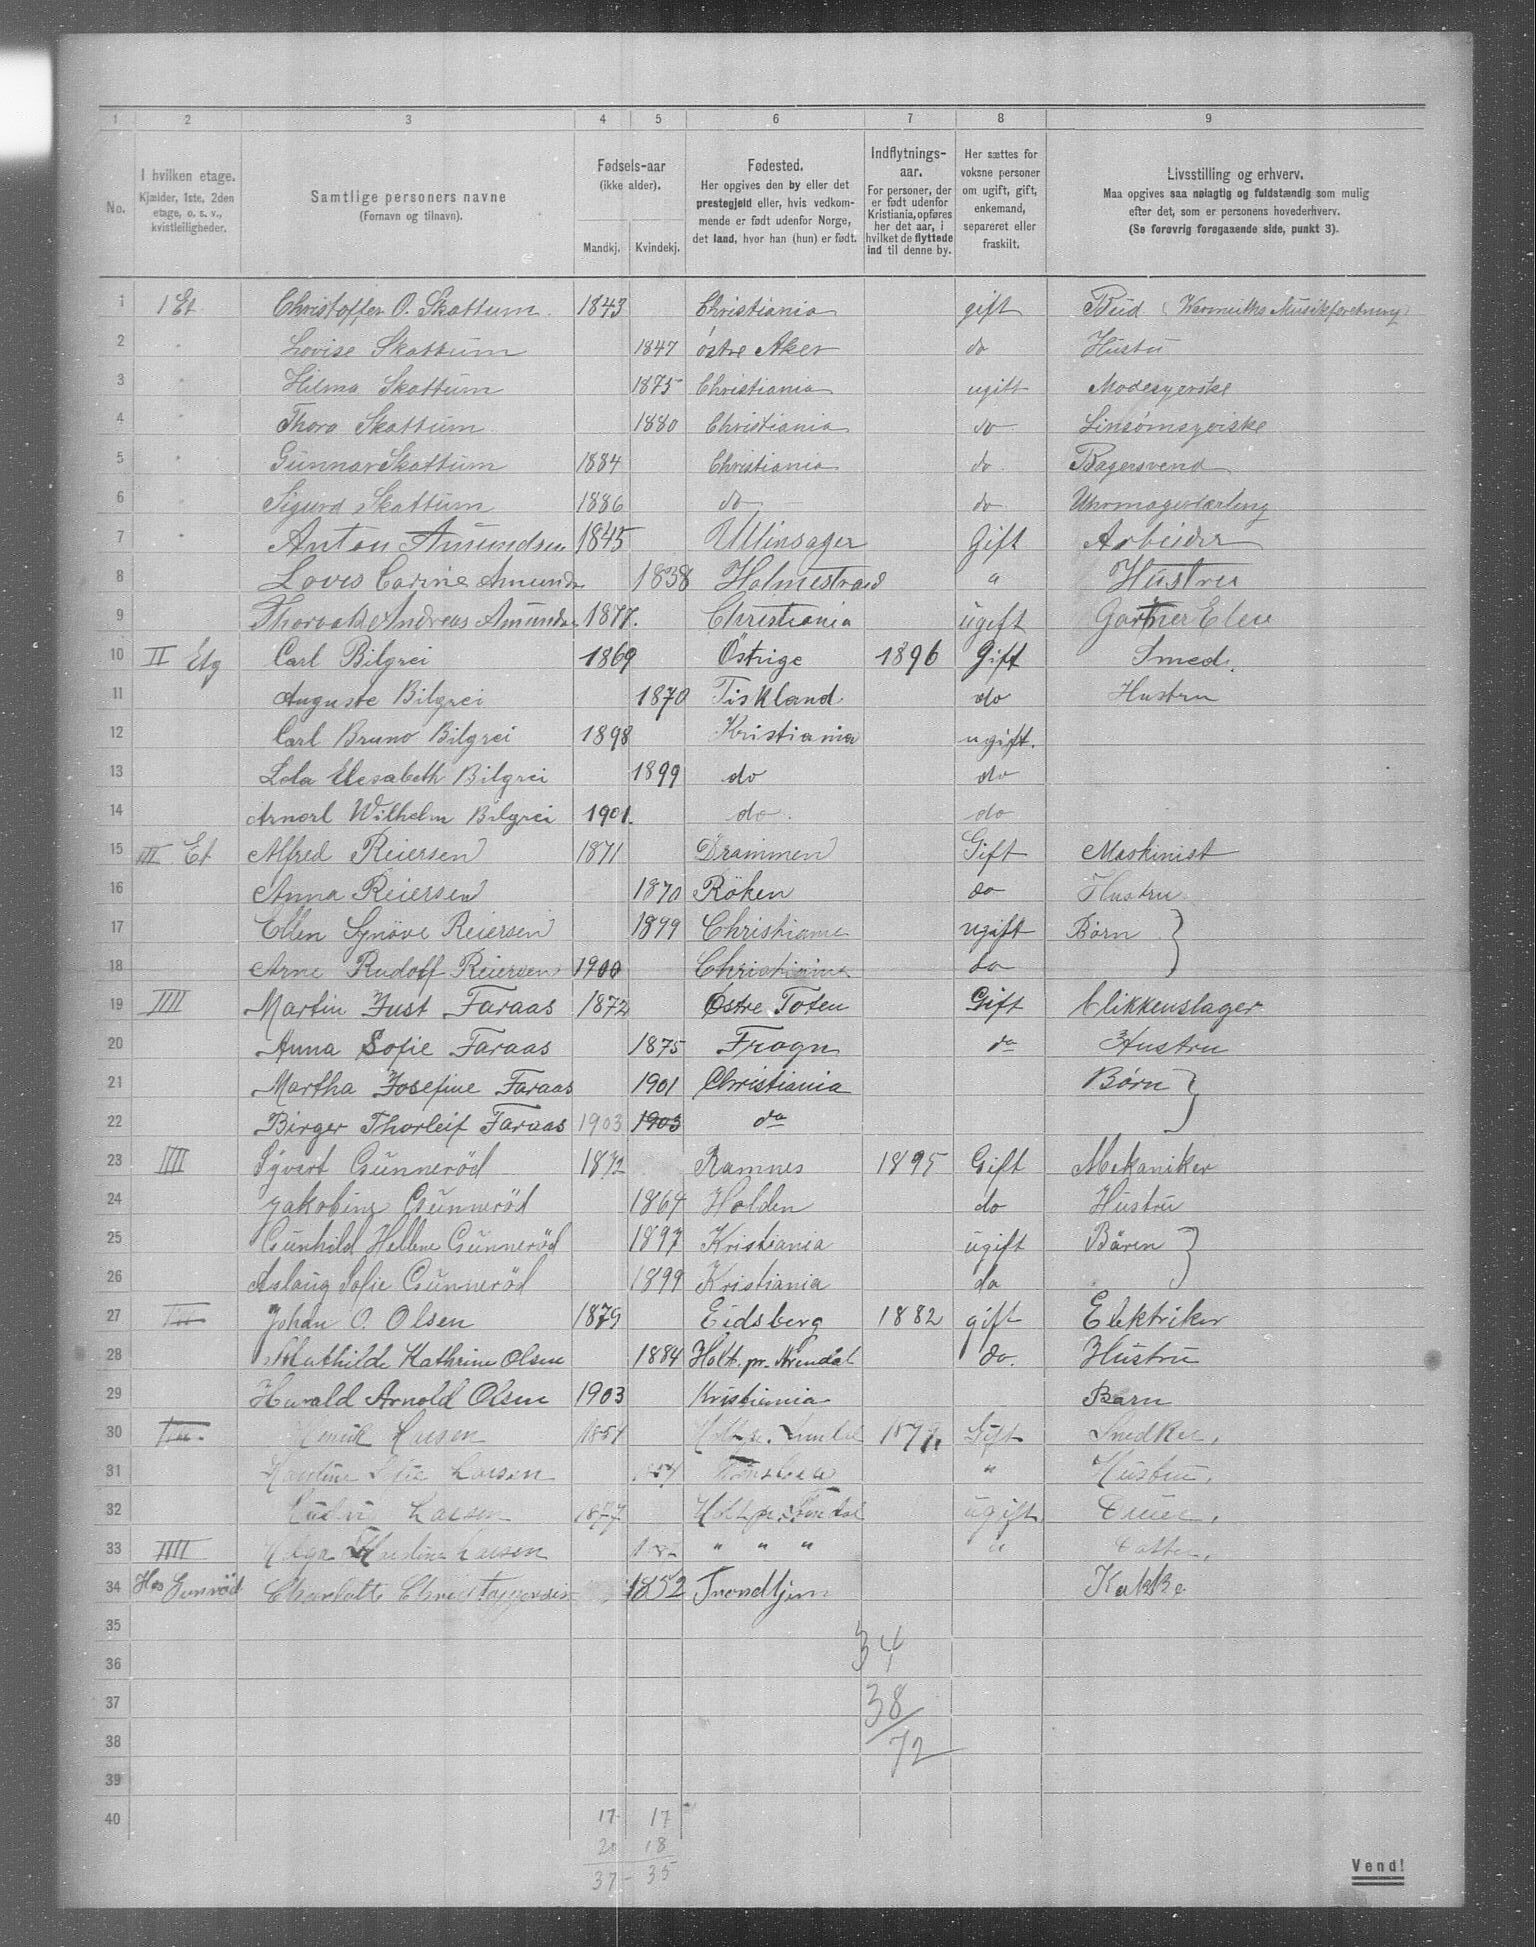 1 2 3 4 5 6 7 8 9
No. I hvilken etage. Kjælder, 1ste, 2den etage, o. s. v., kvistleiligheder. Samtlige personers navne (Fornavn og tilnavn). Fødsels-aar (ikke alder). Mandkj. Kvindekj. Fødested. Her opgives den by eller det prestegjeld eller, hvis vedkommende er født udenfor Norge, det land, hvor han (hun) er født. Indflytnings-aar. For personer, der er født udenfor Kristiania, opføres her det aar, i hvilket de flyttede ind til denne by. Her sættes for voksne personer om ugift, gift, enkemand, separeret eller fraskilt. Livsstilling og erhverv. Maa opgives saa nøiagtig og fuldstændig som mulig efter det, som er personens hovederhverv. (Se forøvrig foregaaende side, punkt 3).
1 1 Et Christoffer O. Skattum 1843 Christiania gift Bud (Warmuths Musikforetning)
2 " Lovise Skattum 1847 östre Aker do Hustu
3 " Hilma Skattum 1875 Christiania ugift Modesyerske
4 " Thora Skattum 1880 Christiania do Linsömsyerske
5 " Gunnar Skattum 1884 Christiania do Bagersvend
6 " Sigurd Skattum 1886 do do Uhrmagerlærling
7 " Anton Amundsen 1845 Ullinsager Gift Arbeider
8 Lovis Carine Amunds 1838 Holmestrand " Hustru
9 Thorvald Andreas Amunds 1877. Christiania ugift Gartner Elev
10 II Etg Carl Bilgrei 1869 Östrige 1896 Gift Smed.
11 Auguste Bilgrei 1870 Tiskland do Hustru
12 Carl Bruno Bilgrei 1898 Kristiania ugift.
13 Lola Elesabeth Bilgrei 1899 do do
14 Arnorl Wilhelm Bilgrei 1901. do. do
15 III Et Alfred Reiersen 1871 Drammen Gift Maskinist
16 Anna Reiersen 1870 Röken do Hustru
17 Ellen Synöve Reiersen 1899 Christiania ugift Børn }
18 Arne Rudolf Reiersen 1900 Christiania do
19 IIII Martin Just Faraas 1872 Østre Toten Gift Blikkenslager
20 Anna Sofie Faraas 1875 Frogn do Hustru
21 Martha Josefine Faraas 1901 Christiania Børn }
22 Birger Thorleif Faraas 1903 1903 do
23 IIII Syvert Gunneröd 1872 Ramnes 1895 Gift Mekaniker
24 Jakobine Gunneröd 1864 Holden do Hustru
25 Gunhild Hellene Gunneröd 1897 Kristiania ugift Bären }
26 Aslaug Sofie Gunneröd 1899 Kristiania do
27 Johan O. Olsen 1879 Eidsberg 1882 gift Elektriker
28 Mathilde Kathrine Olsen 1884 Holt. pr. Arendal do. Hustru
29 Harald Arnold Olsen 1903 Kristiania Barn
30 Larsen 1854 Holt pr. Gift Snedker,
31 Sofie Larsen " Hustru,
32 Larsen 1877 Holt pr. ugift
33 IIII Larsen " " " " Datter,
34 Hos Gunröd Charlotte 1852 Trondhjem Kokke
35
36 34
37 38
38 72
39
40 17 17
20 18
37 - 35
Vend!